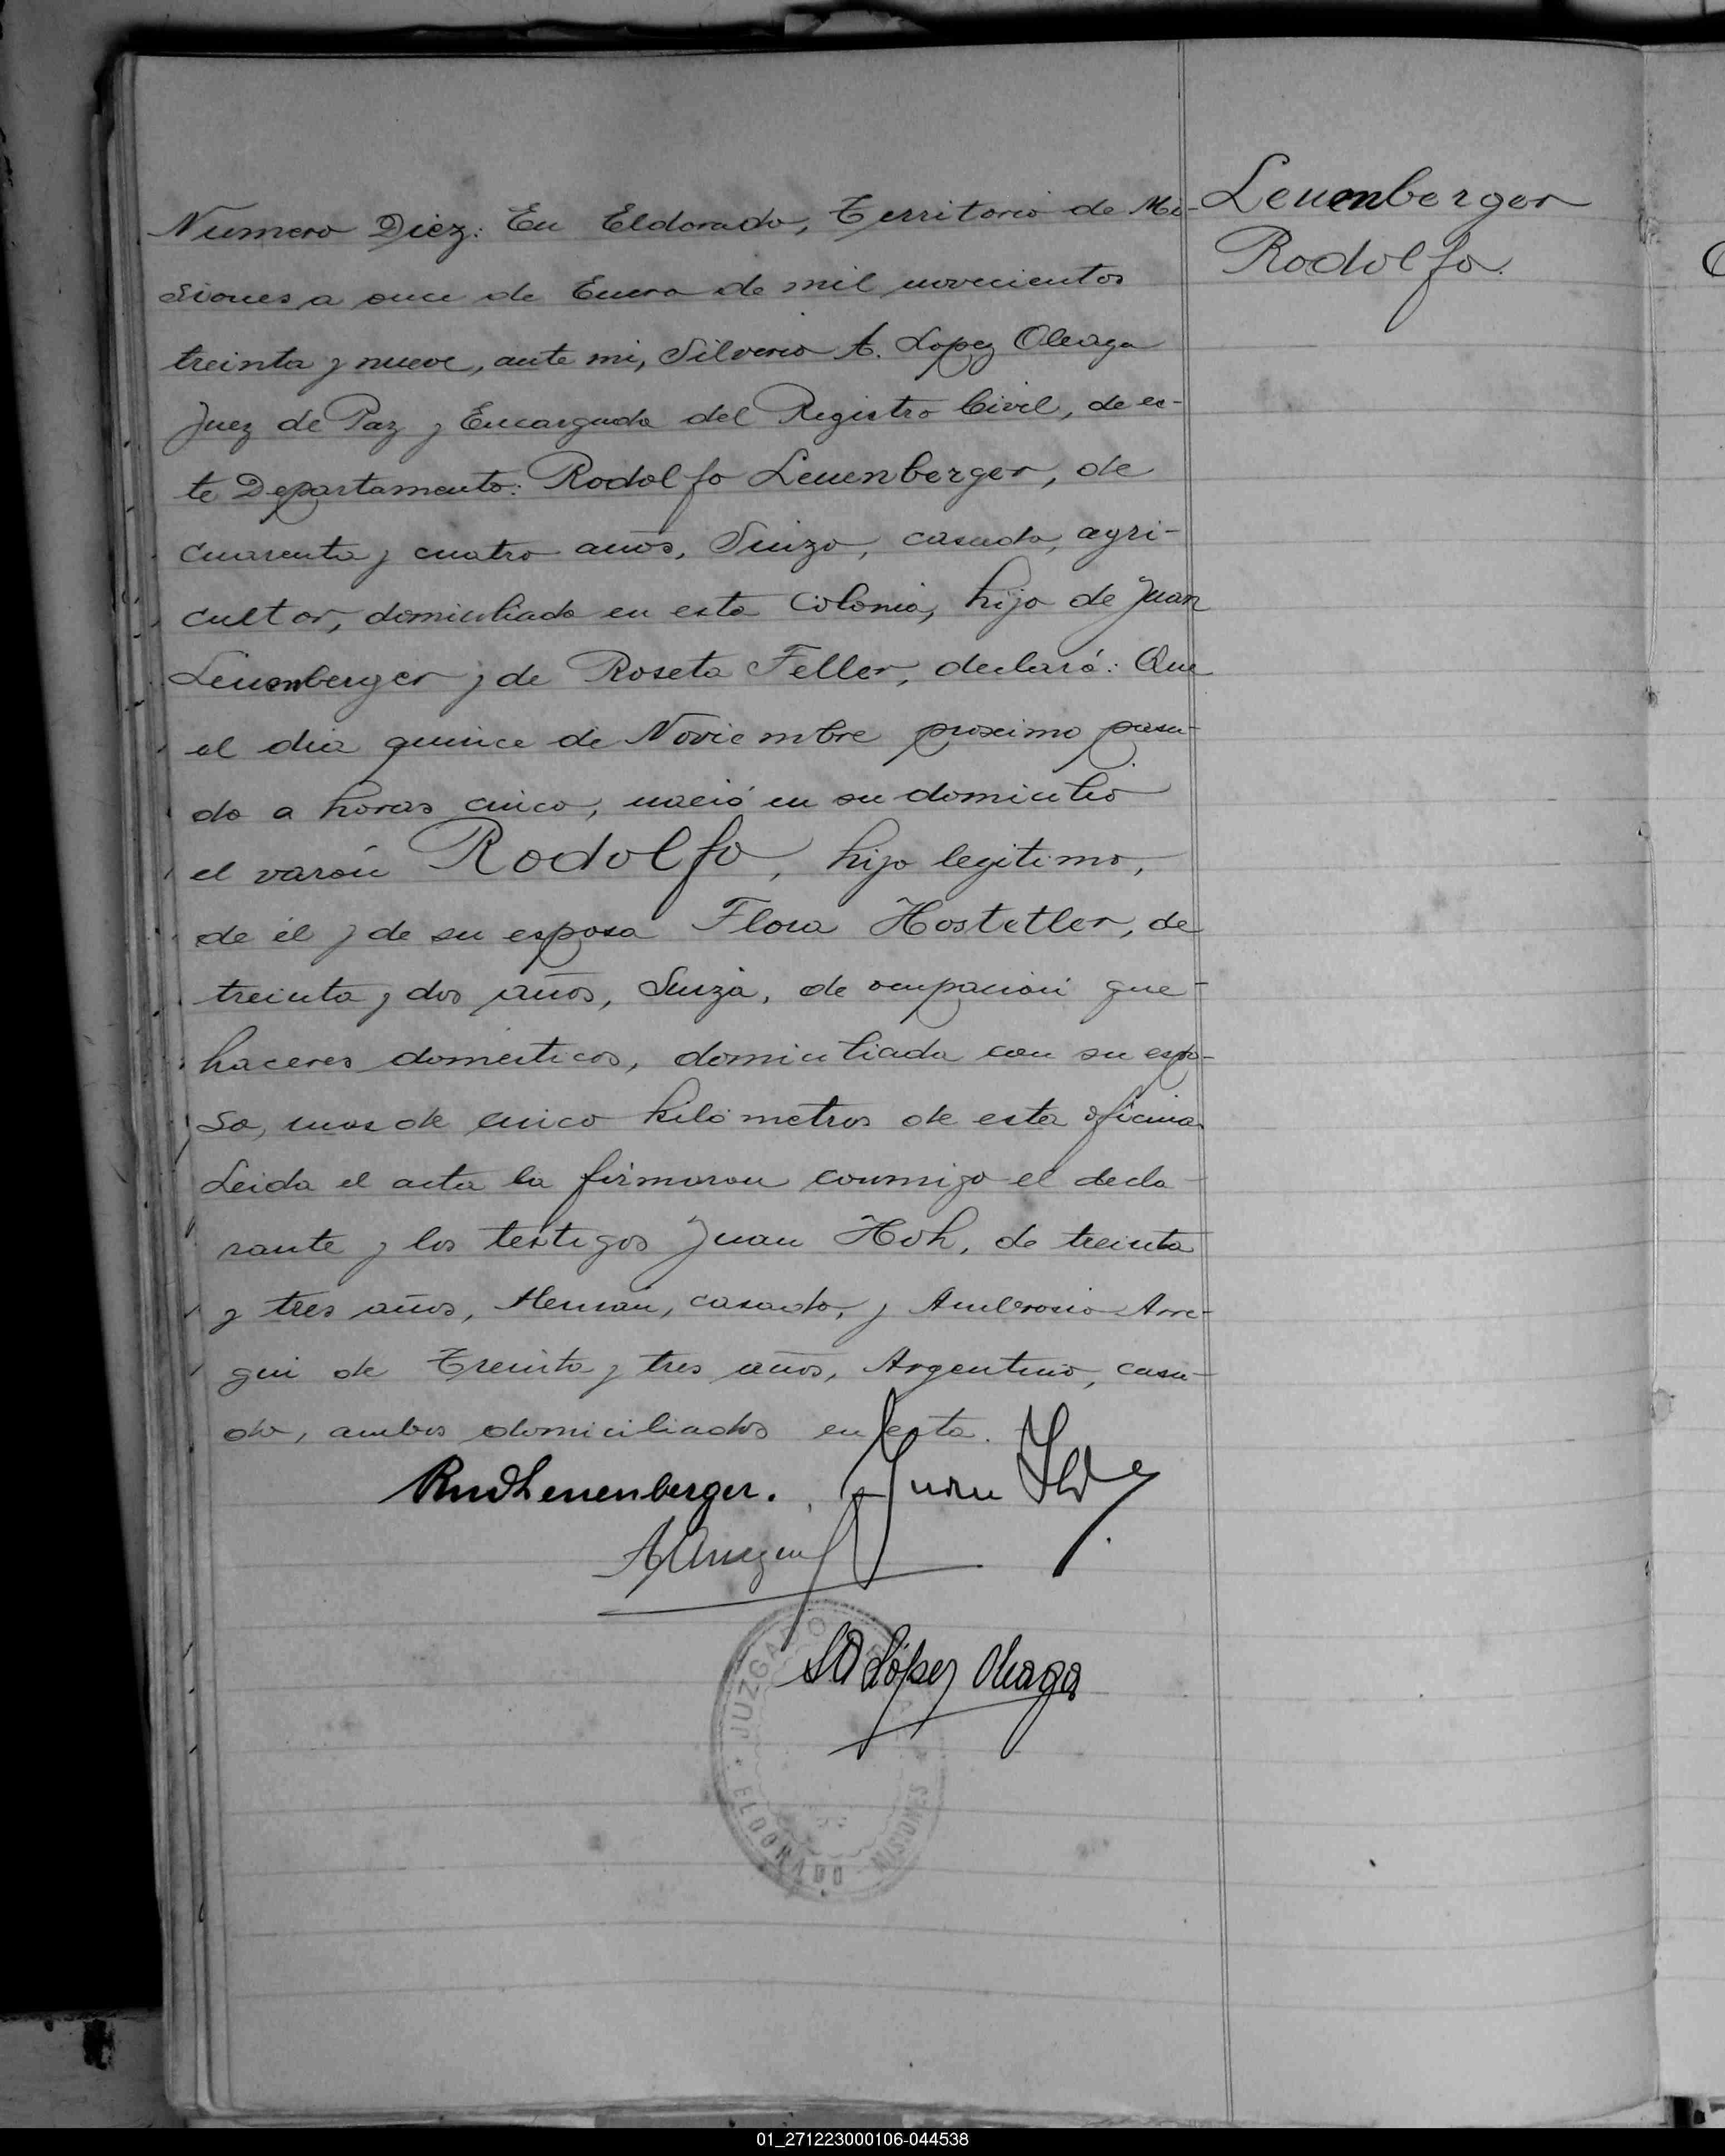 Leuenberger
Rodolfo.
Numero Diez: En Eldorado, Territorio de Mi-
siones a once de Enero de mil novecientos
treinta y nueve, ante mi, Silverio A. Lopez Oleaga
Juez de Paz y Encargado del Registro Civil, de es-
te Departamento: Rodolfo Leuenberger, de
cuarenta y cuatro años, Suizo, casado, agri-
cultor, domiciliado en esta Colonia, hijo de Juan
Leuenberger y de Roseta Feller, declaró: Que
el dia quince de Noviembre proximo pasa-
do a horas cinco, nació en su domicilio
el varón Rodolfo, hijo legitimo,
de él y de su esposa Flora Hostetler, de
treinta y dos años, Suiza, de ocupación que-
haceres domésticos, domiciliada con su espo-
so, mas de cinco kilómetros de esta oficina
Leida el acta la firmaron conmigo el decla-
rante y los testigos Juan Hoh, de treinta
y tres años, Aleman, casado, y Ambrosio Arre-
gui de Treinta y tres años, Argentino, casa-
do, ambos domiciliados en esta.
Rud Leuenberger. Juan Hoh
A Arregui
SA López Oleaga
JUZGADO
ELDORADO - MISIONES
01_271223000106-044538